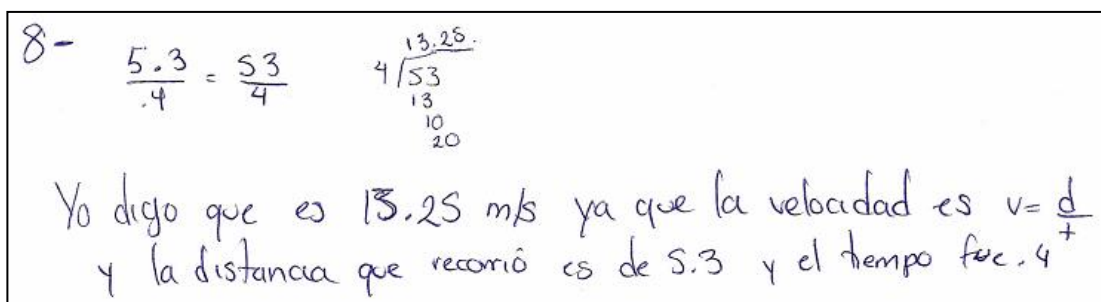 8-
5.3/.4 = 53/4
13.25
4/53
13
10
20
Yo digo que es 13.25 m/s ya que la velocidad es v= d/t
y la distancia que recorrió es de 5.3 y el tiempo fue .4